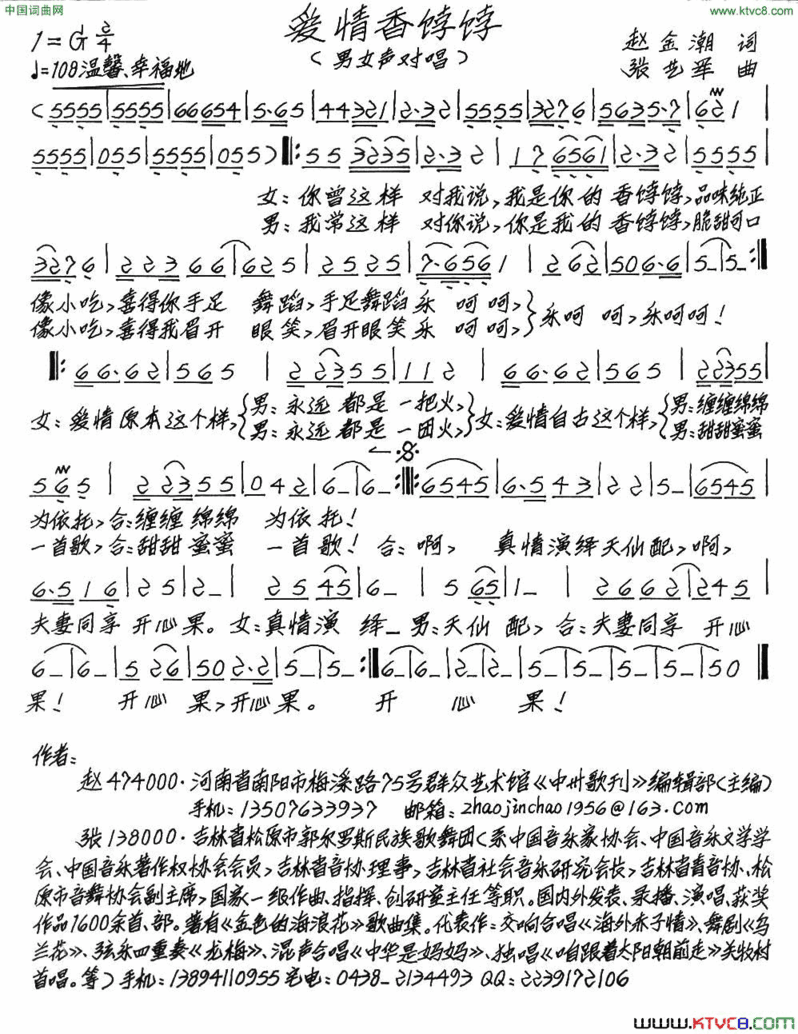 中国词曲网
www.ktvc8.com
爱情香饽饽
(男女声对唱)
1=G 2/4
♩=108 温馨、幸福地
赵金潮 词
张艺军 曲
(5555|5555|66654|5·65|44321|2·32|5555|3276|5635·7|621|
5555|055|5555|055)‖:55 3235|2·32|17 6561|2·32|5555|
女:你曾这样 对我说,我是你的 香饽饽,品味纯正
男:我常这样 对你说,你是我的 香饽饽,脆甜可口
3276|22366|625|2525|7·6561|262|506·6|5_|5_:‖
像小吃,喜得你手足 舞蹈,手足舞蹈乐 呵呵,
像小吃,喜得我眉开 眼笑,眉开眼笑乐 呵呵,
乐呵 呵,乐呵呵!
‖:66·62|565|22355|112|66·62|565|22355|
女:爱情原本这个样,男:永远 都是 一把火,女:爱情自古这个样,男:缠缠绵绵
男:永远 都是 一团火,男:甜甜蜜蜜
565|22355|042|6_|6_:‖:6545|6·543|225|5_|6545|
为依托,合:缠缠 绵绵 为依托!
一首歌,合:甜甜 蜜蜜 一首歌!合:啊, 真情演绎天仙配,啊,
6·516|25|2_|2545|6_|565|1_|2662|245|
夫妻同享 开心果。女:真情演 绎_男:天仙 配,合:夫妻同享 开心
6_|6_|526|502·2|5_|5_:‖6_|6_|2_|2_|5_|5_|5_|5_|50‖
果! 开心 果,开心果。 开 心 果!
作者:
赵 474000·河南省南阳市梅溪路75号群众艺术馆《中州歌刊》编辑部(主编)
手机:13507633937 邮箱:zhaojinchao1956@163.com
张 138000·吉林省松原市郭尔罗斯民族歌舞团(系中国音乐家协会、中国音乐文学学
会、中国音乐著作权协会会员,吉林省音协理事,吉林省社会音乐研究会长,吉林省青音协、松
原市音舞协会副主席,国家一级作曲、指挥、创研室主任等职。国内外发表、录播、演唱、获奖
作品1600余首、部。著有《金色的海浪花》歌曲集。代表作:交响合唱《海外赤子情》、舞剧《乌
兰花》、弦乐四重奏《龙梅》、混声合唱《中华是妈妈》、独唱《咱跟着太阳朝前走》关牧村
首唱。等)手机:13894110955 宅电:0438_2134493 QQ:2239172106
www.KTVC8.com